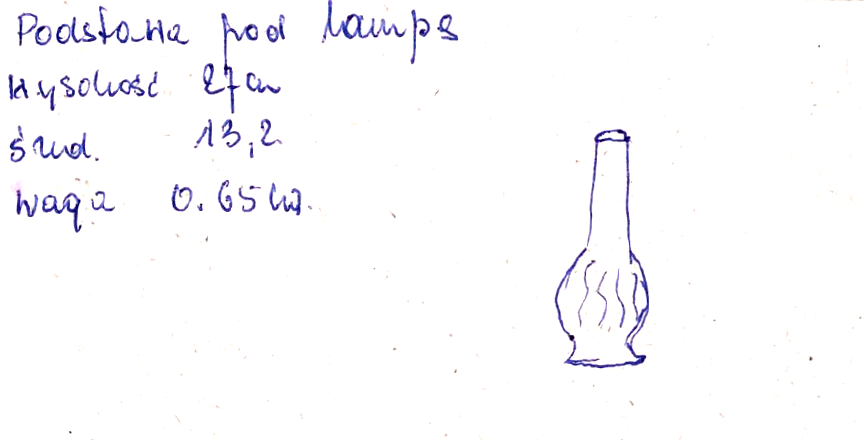 Podstawa pod lampę
Wysokość 27 cm
śred. 13,2
waga 0.65 kg.